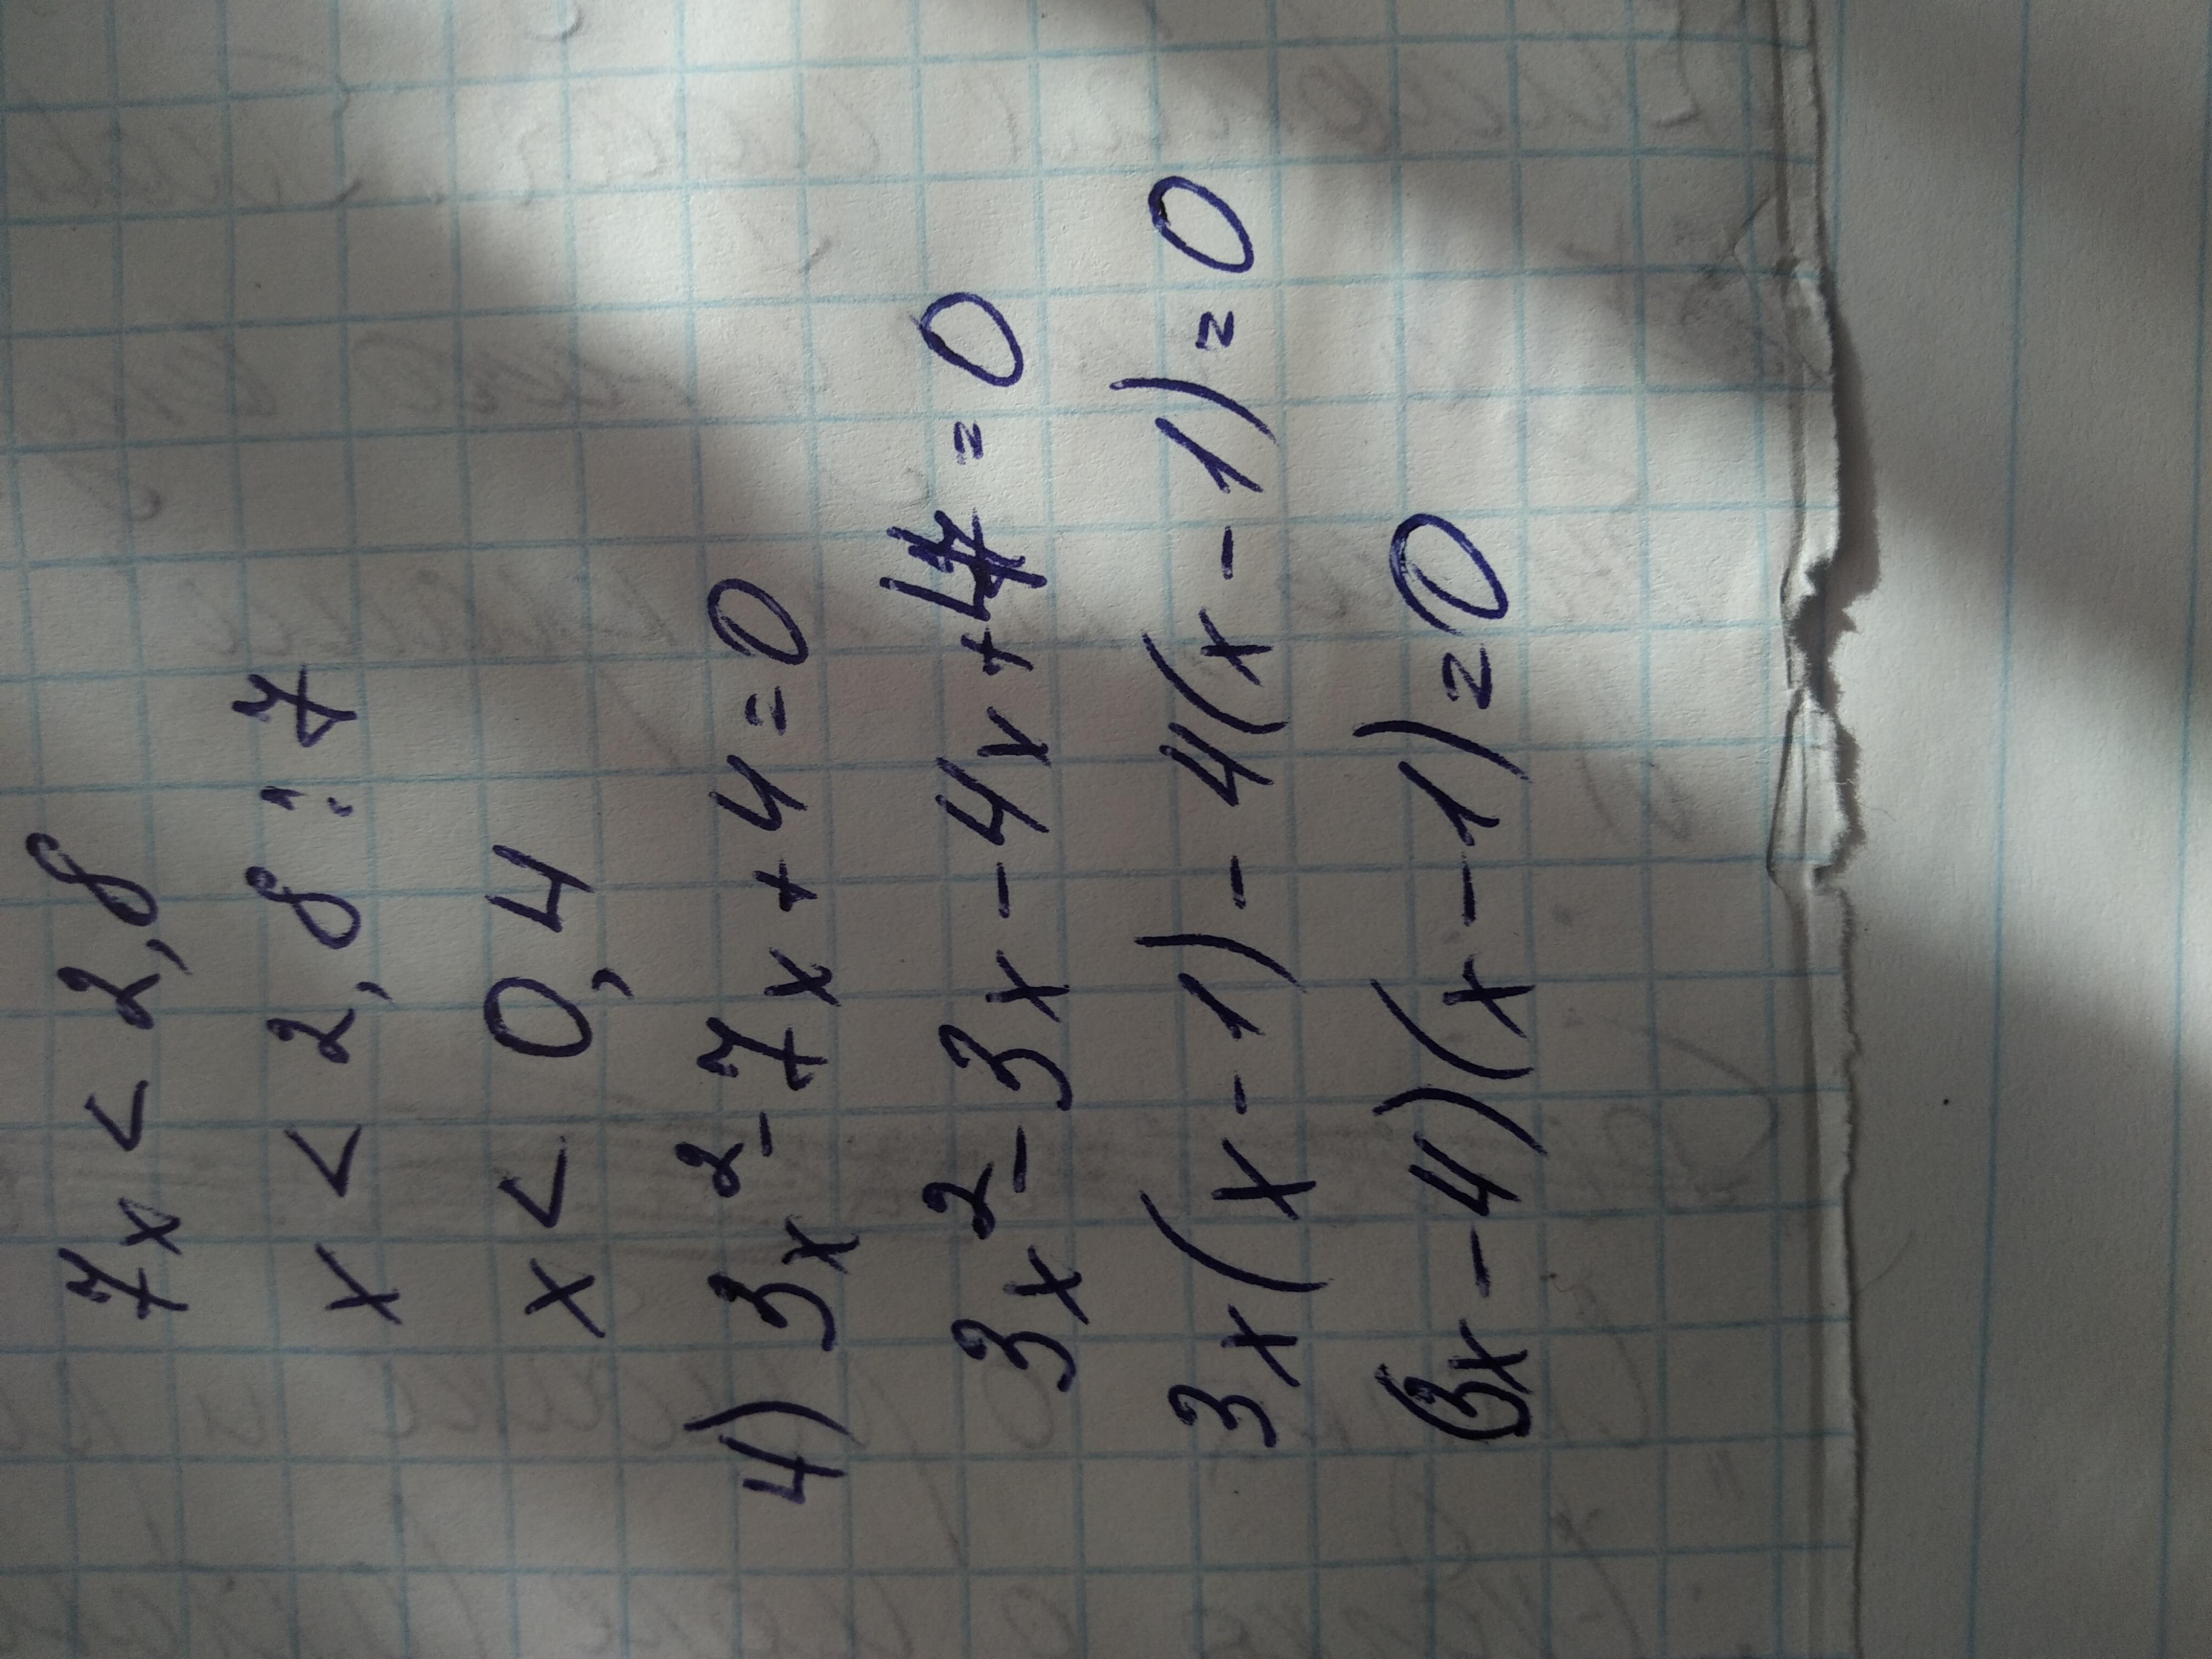 7x < 2,8
x < 2,8 : 7
x < 0,4
4) 3x² - 7x + 4 = 0
3x² - 3x - 4x + 4 = 0
3x(x - 1) - 4(x - 1) = 0
(3x - 4)(x - 1) = 0